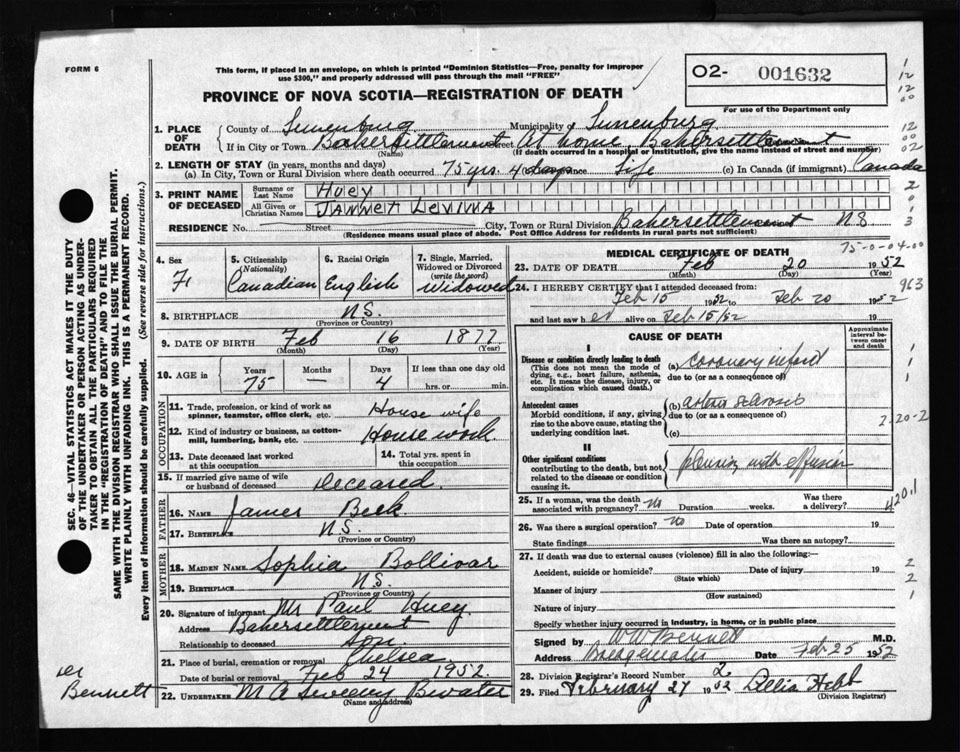 FORM 6
This form, if placed in an envelope, on which is printed "Dominion Statistics—Free, penalty for improper
use $300," and properly addressed will pass through the mail "FREE"
O2- 001632
For use of the Department only
PROVINCE OF NOVA SCOTIA—REGISTRATION OF DEATH
1. PLACE OF DEATH
County of Lunenburg Municipality of Lunenburg
If in City or Town Bakersettlement Street At home, Bakersettlement
(Name) (If death occurred in a hospital or institution, give the name instead of street and number)
2. LENGTH OF STAY (in years, months and days)
(a) In City, Town or Rural Division where death occurred 75 yrs. 4 days Life (c) In Canada (if immigrant) Canada
3. PRINT NAME OF DECEASED
Surname or Last Name HUEY
All Given or Christian Names JANNET LEVINA
RESIDENCE No. Street City, Town or Rural Division Bakersettlement N S
(Residence means usual place of abode. Post Office Address for residents in rural parts not sufficient)
4. Sex F
5. Citizenship (Nationality) Canadian
6. Racial Origin English
7. Single, Married, Widowed or Divorced (write the word) Widowed
8. BIRTHPLACE N.S.
(Province or Country)
9. DATE OF BIRTH Feb 16 1877
(Month) (Day) (Year)
10. AGE Years 75 Months — Days 4 If less than one day old hrs. or min.
OCCUPATION
11. Trade, profession, or kind of work as spinner, teamster, office clerk, etc. House wife
12. Kind of industry or business, as cotton-mill, lumbering, bank, etc. House work
13. Date deceased last worked at this occupation
14. Total yrs. spent in this occupation
15. If married give name of wife or husband of deceased Deceased.
FATHER
16. NAME James Beck
17. BIRTHPLACE N.S.
(Province or Country)
MOTHER
18. MAIDEN NAME Sophia Bollivar
19. BIRTHPLACE N.S.
(Province or Country)
20. Signature of informant Mr Paul Huey
Address Bakersettlement
Relationship to deceased son
21. Place of burial, cremation or removal Chelsea
Date of burial or removal Feb 24 1952.
22. UNDERTAKER M A Sweeny Bwater
(Name and address)
MEDICAL CERTIFICATE OF DEATH
23. DATE OF DEATH Feb 20 1952
(Month) (Day) (Year)
24. I HEREBY CERTIFY that I attended deceased from:
Feb 15 1952 to Feb 20 1952
and last saw h er alive on Feb 15/52 19
CAUSE OF DEATH
Approximate interval between onset and death
I
Disease or condition directly leading to death (a) Coronary infarct
(This does not mean the mode of dying, e.g., heart failure, asthenia, etc. It means the disease, injury, or complication which caused death.)
due to (or as a consequence of)
Antecedent causes (b)
Morbid conditions, if any, giving rise to the above cause, stating the underlying condition last.
due to (or as a consequence of)
(c)
II
Other significant conditions
contributing to the death, but not related to the disease or condition causing it.
pleurisy with effusion
25. If a woman, was the death associated with pregnancy? No Duration weeks. Was there a delivery?
26. Was there a surgical operation? No Date of operation 19
State findings Was there an autopsy?
27. If death was due to external causes (violence) fill in also the following:
Accident, suicide or homicide? Date of injury 19
(State which)
Manner of injury
(How sustained)
Nature of injury
Specify whether injury occurred in industry, in home, or in public place
Signed by W W Bennett M.D.
Address Bridgewater Date Feb 25 1952
28. Division Registrar's Record Number 2
29. Filed February 27 1952 Dellia Hebb
(Division Registrar)
SEC. 46—VITAL STATISTICS ACT MAKES IT THE DUTY
OF THE UNDERTAKER OR PERSON ACTING AS UNDER-
TAKER TO OBTAIN ALL THE PARTICULARS REQUIRED
IN THE "REGISTRATION OF DEATH" AND TO FILE THE
SAME WITH THE DIVISION REGISTRAR WHO SHALL ISSUE THE BURIAL PERMIT.
WRITE PLAINLY WITH UNFADING INK. THIS IS A PERMANENT RECORD.
Every item of information should be carefully supplied. (See reverse side for instructions.)
Bennett
1
12
12
00
12
00
02
2
0
1
3
75-0-04-00
963
1
1
1
420.1
2
2
1